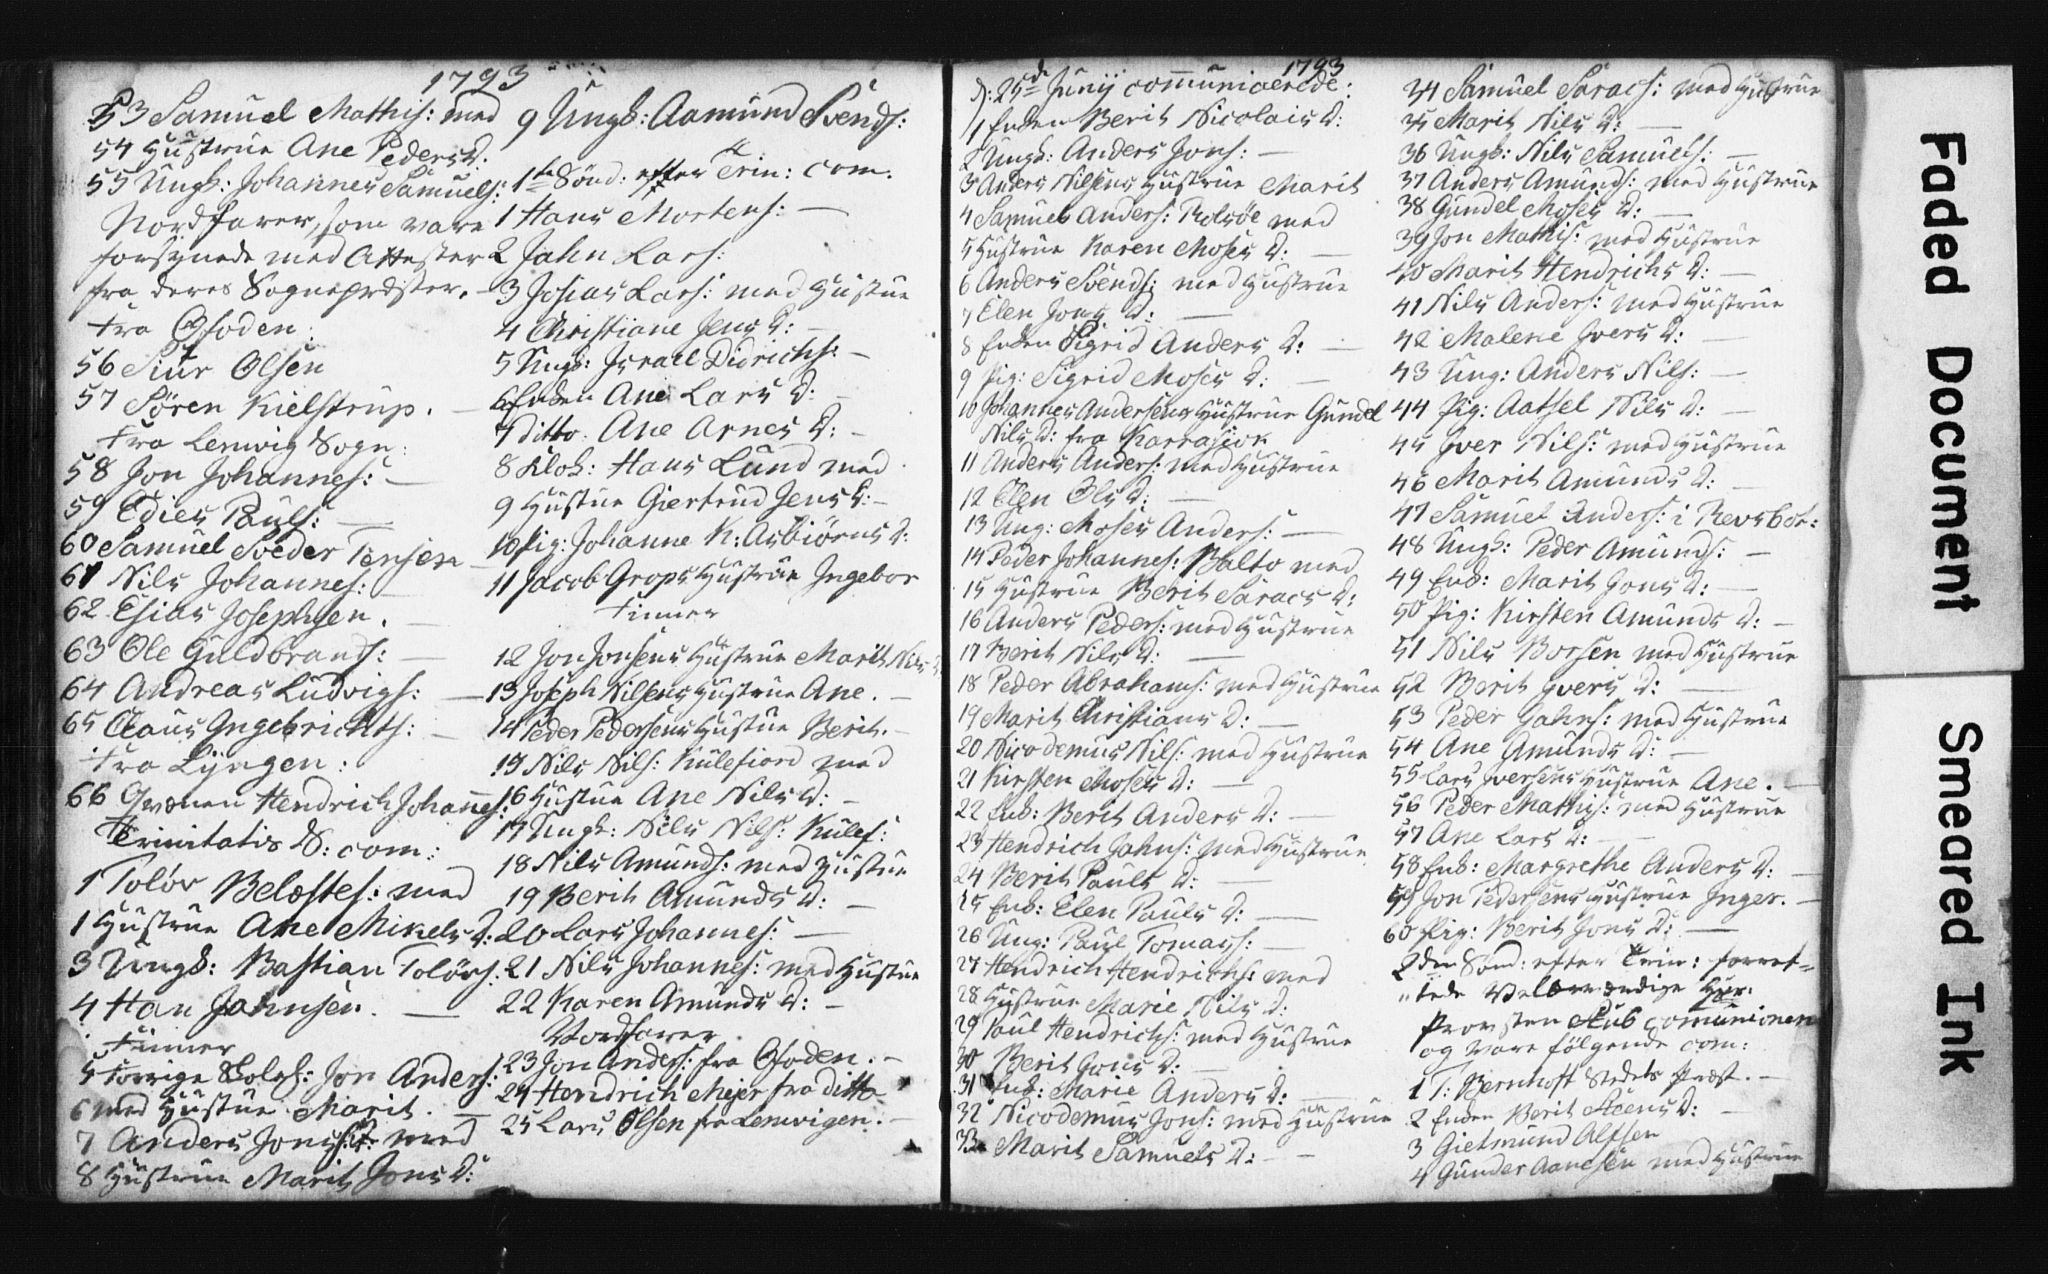 1793
53 Samuel Mathis: med
54 Hustrue Ane Peders D:
55 Ungk: Johannes Samuels:
Nordfarer, som vare
forsynede med Attester
fra deres Sognepræster.
Fra Ofoden:
56 Siur Olsen
57 Sören Kielstrup.
Fra Lenwig Sogn:
58 Jon Johannes:
59 Edies Pauls:
60 Samuel Sveder Tensen
61 Nils Johannes:
62 Esias Josephsen.
63 Ole Guldbrands:
64 Andreas Ludvigs:
65 Claus Ingebrichts:
Fra Lyngen:
66 Qvænen Hendrich Johannes:
Trinitatis S: com:
1 Tolöv Belæstes: med
1 Hustrue Ane Mikels D:
3 Ungk: Bastian Tolövs:
4 Han Jahnsen.
Finner
5 Forrige Skoleh: Jon Anders:
6 med Hustue Marit.
7 Anders Jons: med
8 Hustrue Marit Jons D:
9 Ungk: Aamund Svends:
1te Sönd: efter Trin: com.
1 Hans Mortens:
2 Jahn Lars:
3 Josias Lars: med Hustue
4 Christiane Jens D:
5 Ungk: Israel Didrichs:
6 Enken Ane Lars D:
7 Ditto. Ane Arnes D:
8 Klok: Hans Lund med
9 Hustue Giertrud Jens D:
10 Pig: Johanne K: Asbiörns D:
11 Jacob Grops Hustrue Ingebor
Finner
12 Jon Jonsens Hustrue Marit Nils D:
13 Joseph Nilsens Hustrue Ane.
14 Peder Pedersens Hustue Berit.
15 Nils Nils: Kulefiord med
16 Hustue Ane Nils D:
17 Ungk: Nils Nils: Kulef:
18 Nils Amunds: med Hustue
19 Berit Amunds D:
20 Lars Johannes:
21 Nils Johannes: med Hustue
22 Karen Amunds D:
Nordfarer
23 Jon Anders: fra Ofoden.
24 Hendrich Mejer fra ditto
25 Lars Olsen fra Lenwigen.
1793
D: 25de Junij communicerede:
1 Enken Berit Nicolais D:
2 Ungk: Anders Jons:
3 Anders Nilsens Hustrue Marit
4 Samuel Anders: Rolsöe med
5 Hustrue Karen Moses D:
6 Anders Svends: med Hustrue
7 Elen Jons D:
8 Enken Sigrid Anders D:
9 Pig: Sigrid Moses D:
10 Johannes Andersens Hustrue Gundel
Nils D: fra Karrasiok
11 Anders Anders: med Hustrue
12 Elen Ols D:
13 Ung: Moses Anders:
14 Peder Johannes: Balto med
15 Hustrue Berit Saracs D:
16 Anders Peders: med Hustrue
17 Berit Nils D:
18 Peder Abrahams: med Hustrue
19 Marit Christians D:
20 Nicodemus Nils: med Hustrue
21 Kirsten Moses D:
22 Enk: Berit Anders D:
23 Hendrich Jahns: med Hustrue
24 Berit Pauls D:
25 Enk: Elen Pauls D:
26 Ung: Paul Tomass:
27 Hendrich Hendrichs: med
28 Hustrue Marie Nils D:
29 Paul Hendrichs: med Hustrue
30 Berit Jons D:
31 Enk: Marie Anders D:
32 Nicodemus Jons: med Hustrue
33 Marit Samuels D:
34 Samuel Saracs: med Hustrue
35 Marit Nils D:
36 Ungk: Nils Samuels:
37 Anders Amunds: med Hustrue
38 Gundel Moses D:
39 Jon Mathis: med Hustrue
40 Marit Hendrichs D:
41 Nils Anders: med Hustrue
42 Malene Ivers D:
43 Ung: Anders Nils:
44 Pig: Aatsel Nils D:
45 Iver Nils: med Hustrue
46 Marit Amunds D:
47 Samuel Anders: i Revsbot:
48 Ungk: Peder Amunds:
49 Enk: Marit Jons D:
50 Pig: Kirsten Amunds D:
51 Nils Borsen med Hustrue
52 Berit Ivers D:
53 Peder Jahns: med Hustrue
54 Ane Amunds D:
55 Lars Iversens Hustrue Ane.
56 Peder Mathis: med Hustrue
57 Ane Lars D:
58 Enk: Margrethe Anders D:
59 Jon Pedersens Hustrue Inger.
60 Pig: Berit Jons D:
2den Sönd: efter Trin: forret=
"tede Velærværdige Hær:
Provsten Communionen
og vare fölgende com:
1 T: Bernhoft Stedets Præst.
2 Enken Berit Steens D:
3 Gietmund Alfsen
4 Gunder Aanesen med Hustrue
Faded Document
Smeared Ink